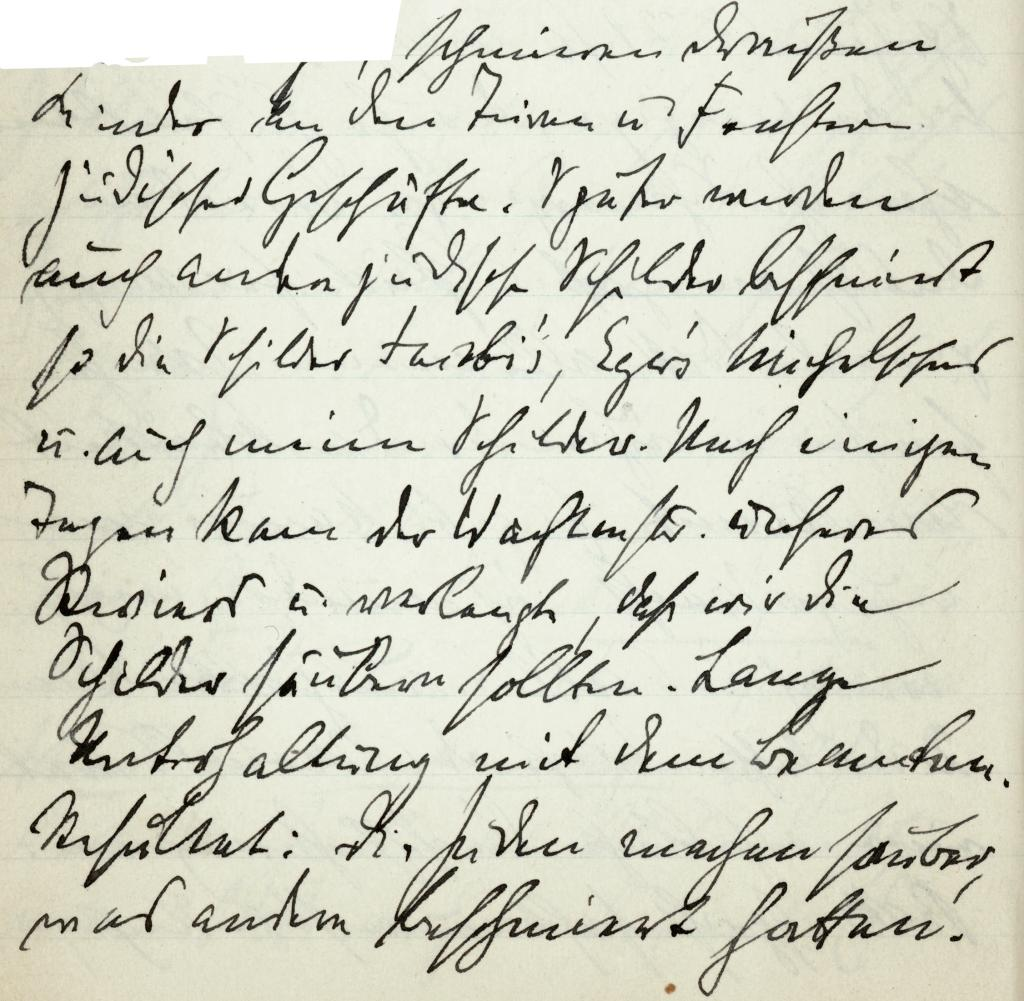 schmieren draußen
Kinder an den Türen u. Fenstern
jüdischer Geschäfte. Später wurden
auch andere jüdische Schilder beschmiert
so die Schilder Jacobi's, Michelsohns
u. auch meine Schilder. Nach einigen
Tagen kam der Wachtmstr. unseres
Reviers u. verlangte, daß wir die
Schilder säubern sollten. Lange
Unterhaltung mit dem Beamten.
Resultat: die Juden machen sauber,
was andere beschmiert hatten!